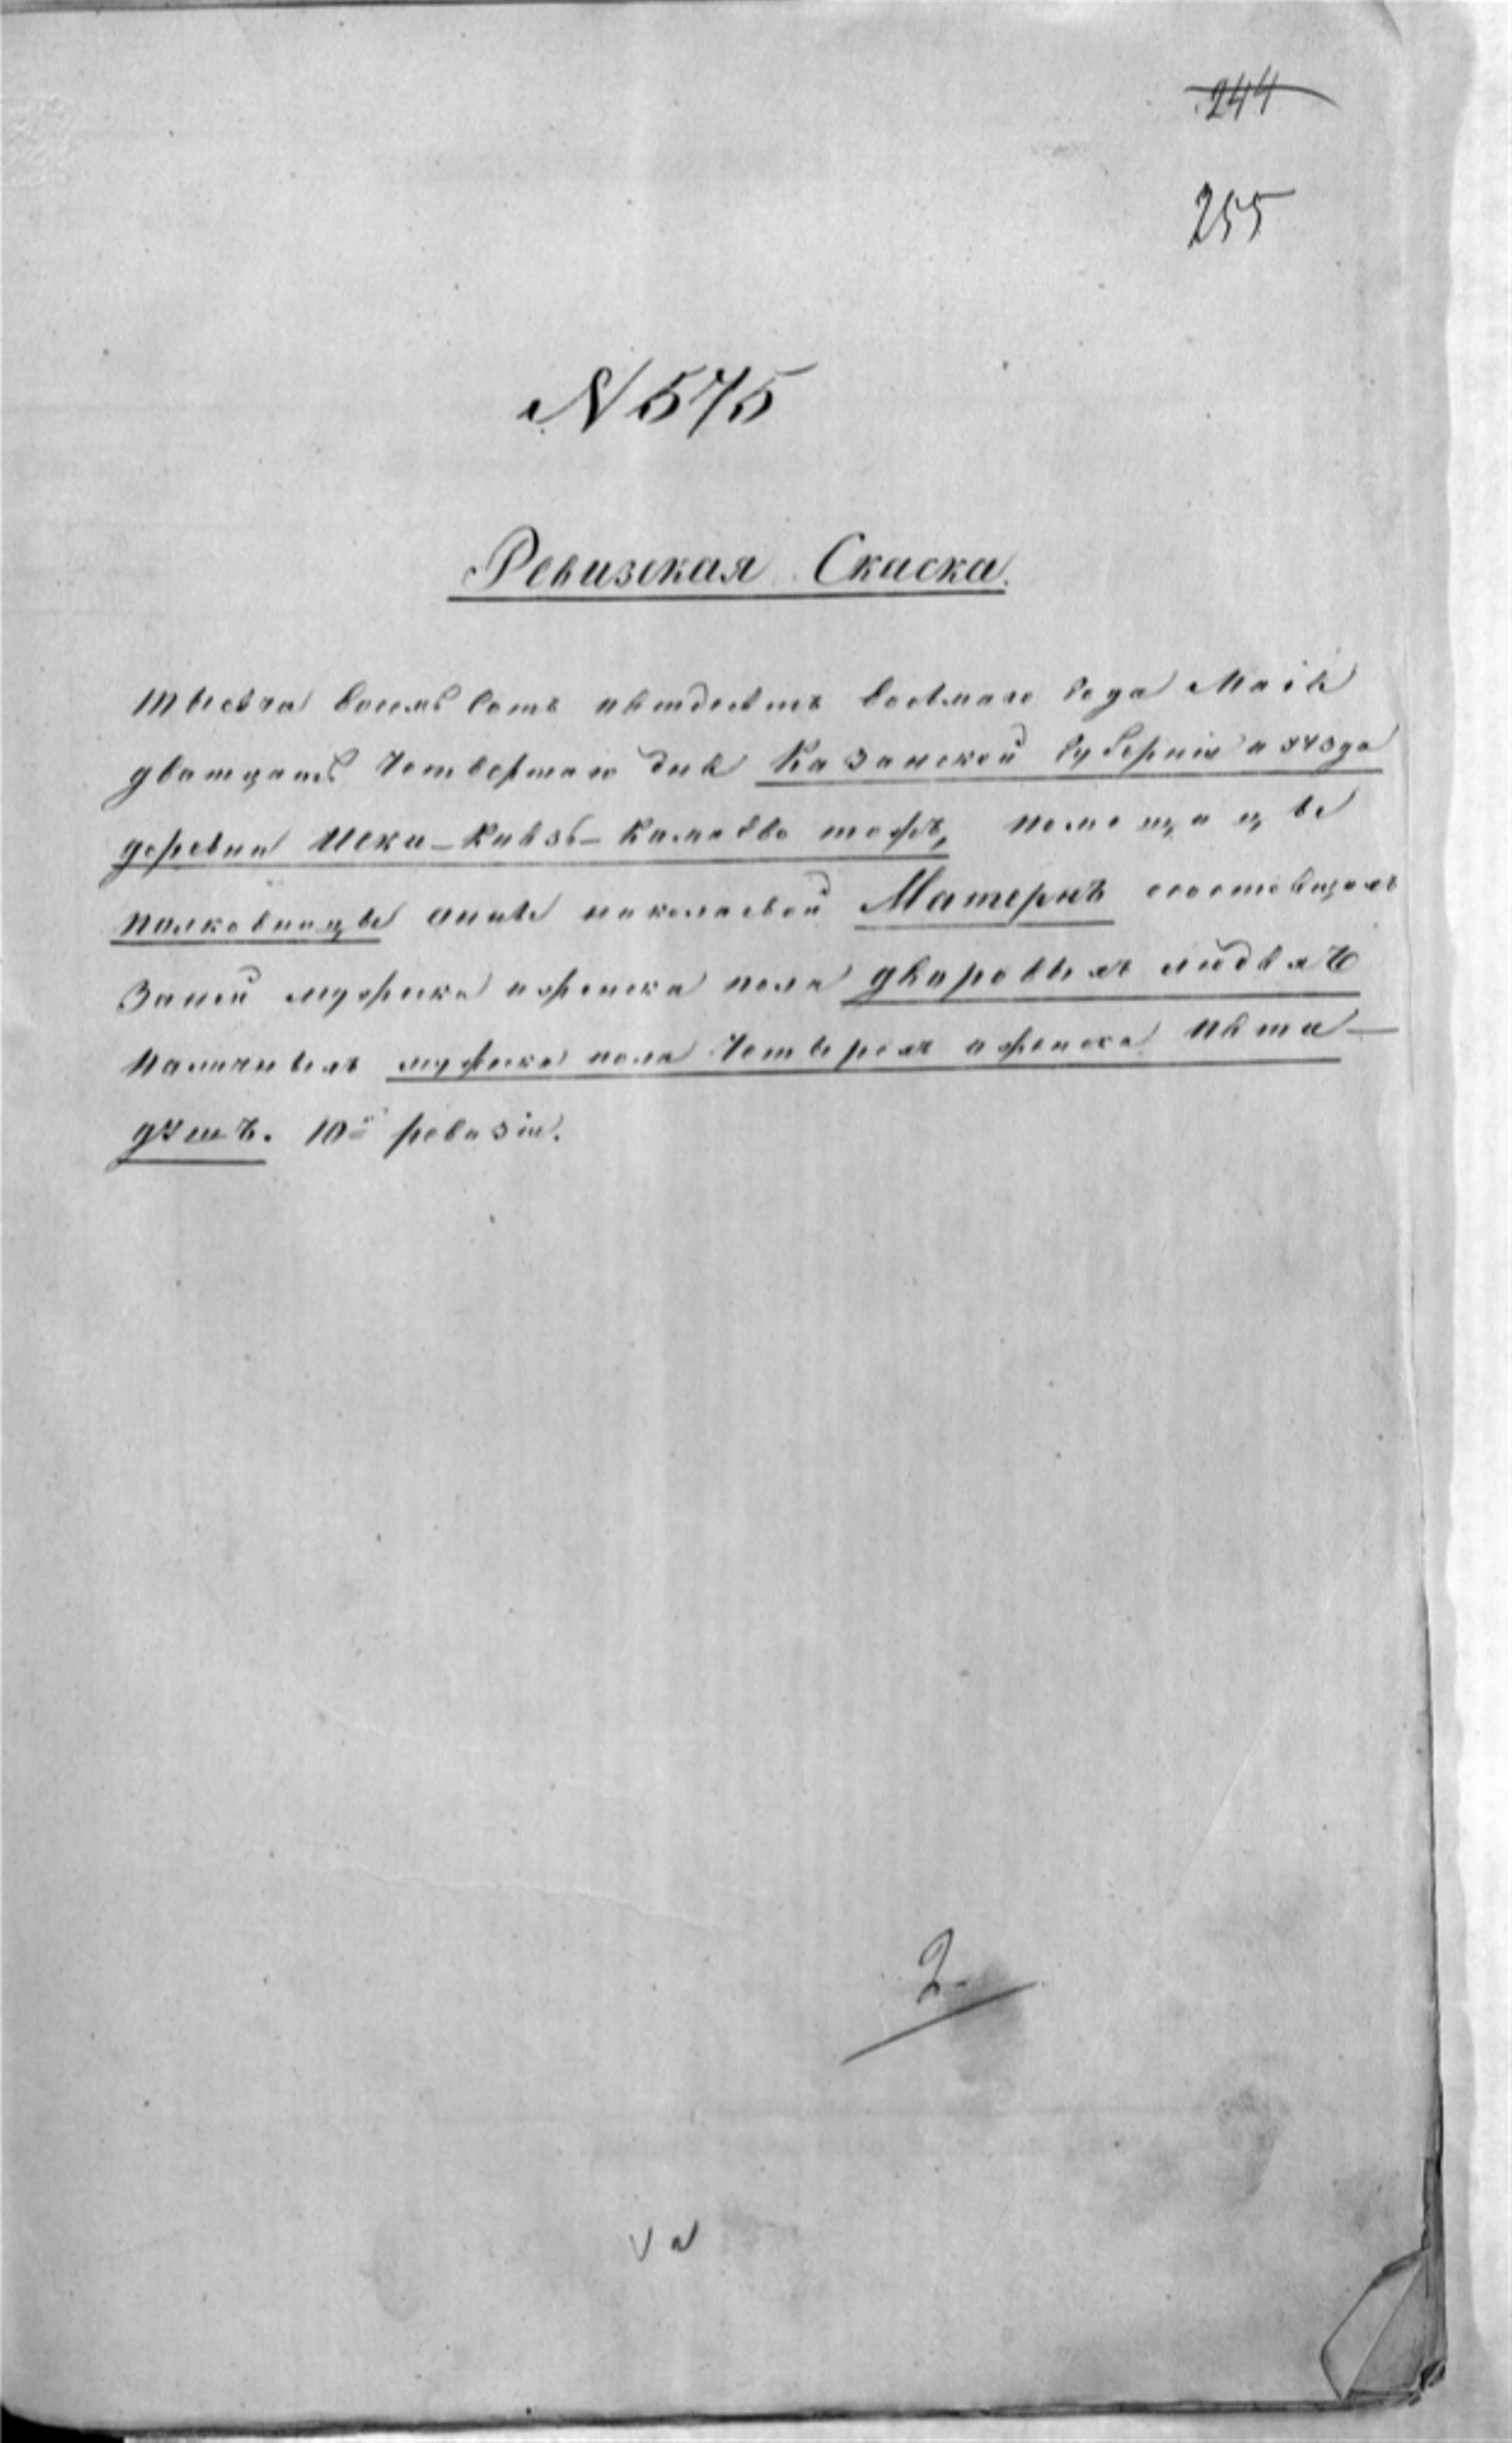 244
255
N 575
Ревизская Скаска.
тысяча восемь сотъ пятдесятъ восьмаго года Маія
дватцать четвертаго дня Казанской губерніи и уезда
деревни Иски-Князь-Камаево тожъ, помещицы
полковницы анны николаевой Матернъ состоящихъ
за ней мужска и женска пола дворовыхъ людяхъ
наличныхъ мужска пола четверых и женска пята
душъ. 10й ревизіи.
2